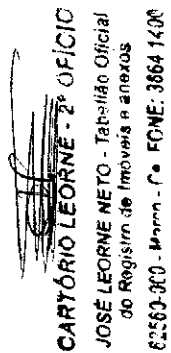 CARTÓRIO LEORNE - 2º OFÍCIO
JOSÉ LEORNE NETO - Tabelião Oficial
do Registro de Imóveis e anexos
62560-000 - Marco - Ce FONE: 3664 1400